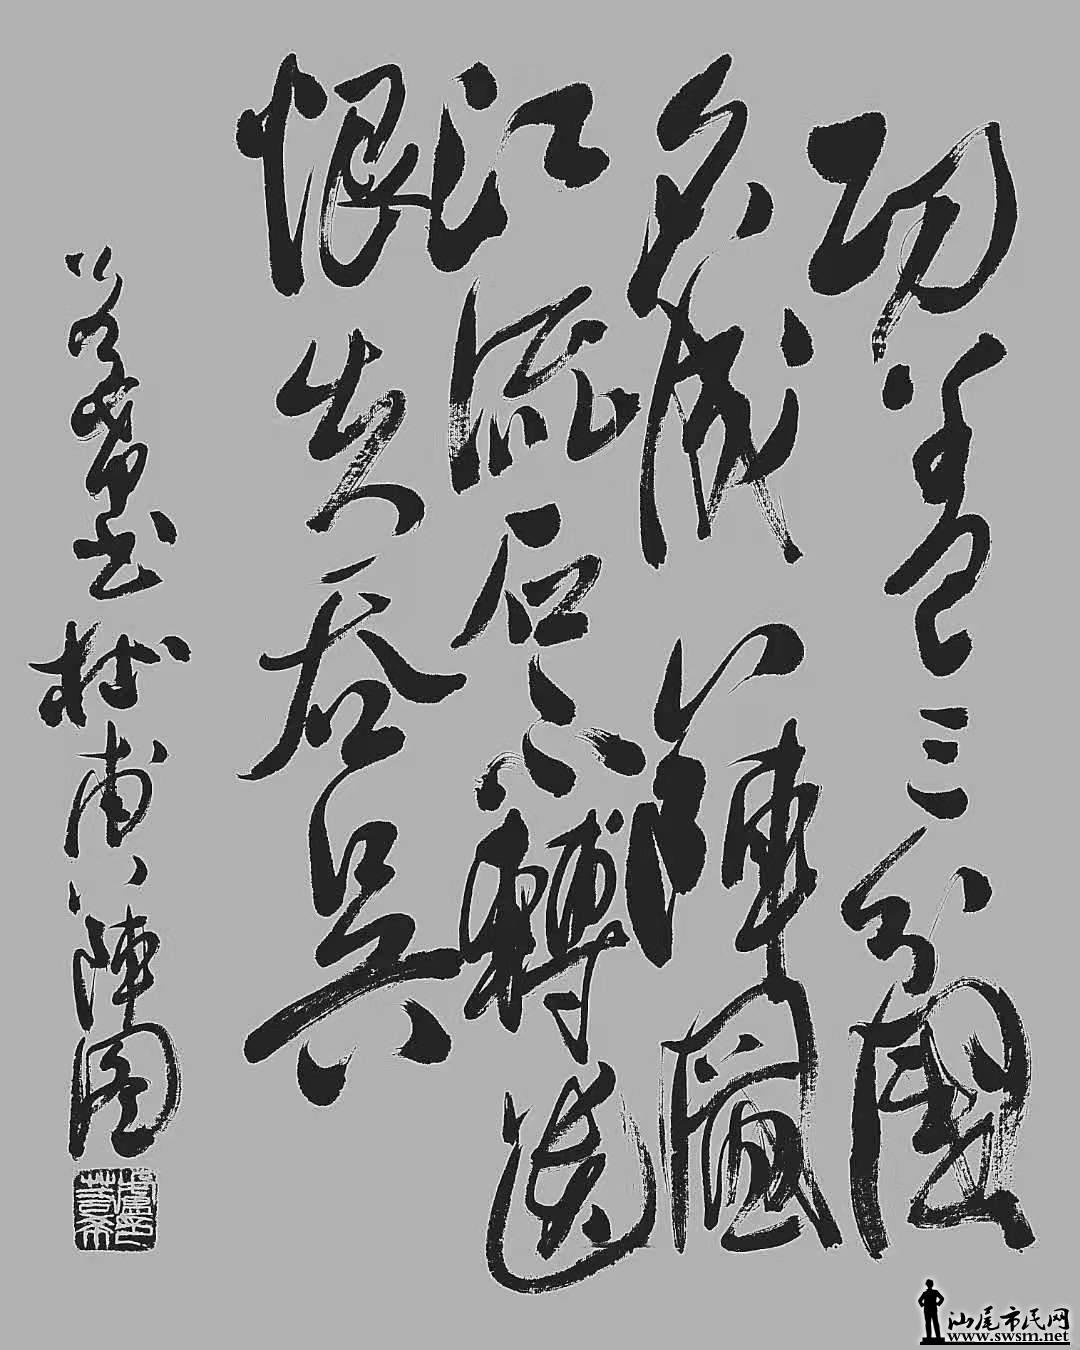 功蓋三分國
名成八陣圖
江流石不轉遺
恨失吞兵
書杜甫八陣图
汕尾市民网
www.swsm.net